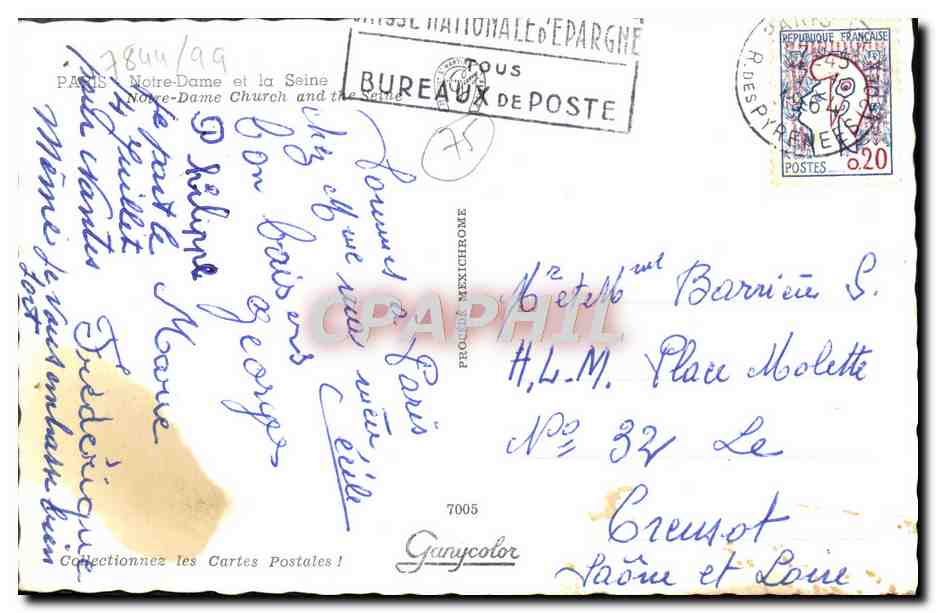 7844/99
PARIS - Notre-Dame et la Seine
Notre-Dame Church and the Seine
CAISSE NATIONALE D'EPARGNE
TOUS
BUREAUX DE POSTE
75
PARIS
R. DES PYRENEES
REPUBLIQUE FRANÇAISE
POSTES
0.20
Sommes à Paris
chez Mme
bon baisers
Georges
Cécile
Philippe
je part le
14 Juillet
Marie
Frédérique
Mémé je vous embrasse bien
fort
PROCÉDÉ MEXICHROME
CPAPHIL
Mr et Mme Barrière S.
H.L.M. Place Molette
No 32 Le
Creusot
Saône et Loire
7005
Ganycolor
Collectionnez les Cartes Postales !